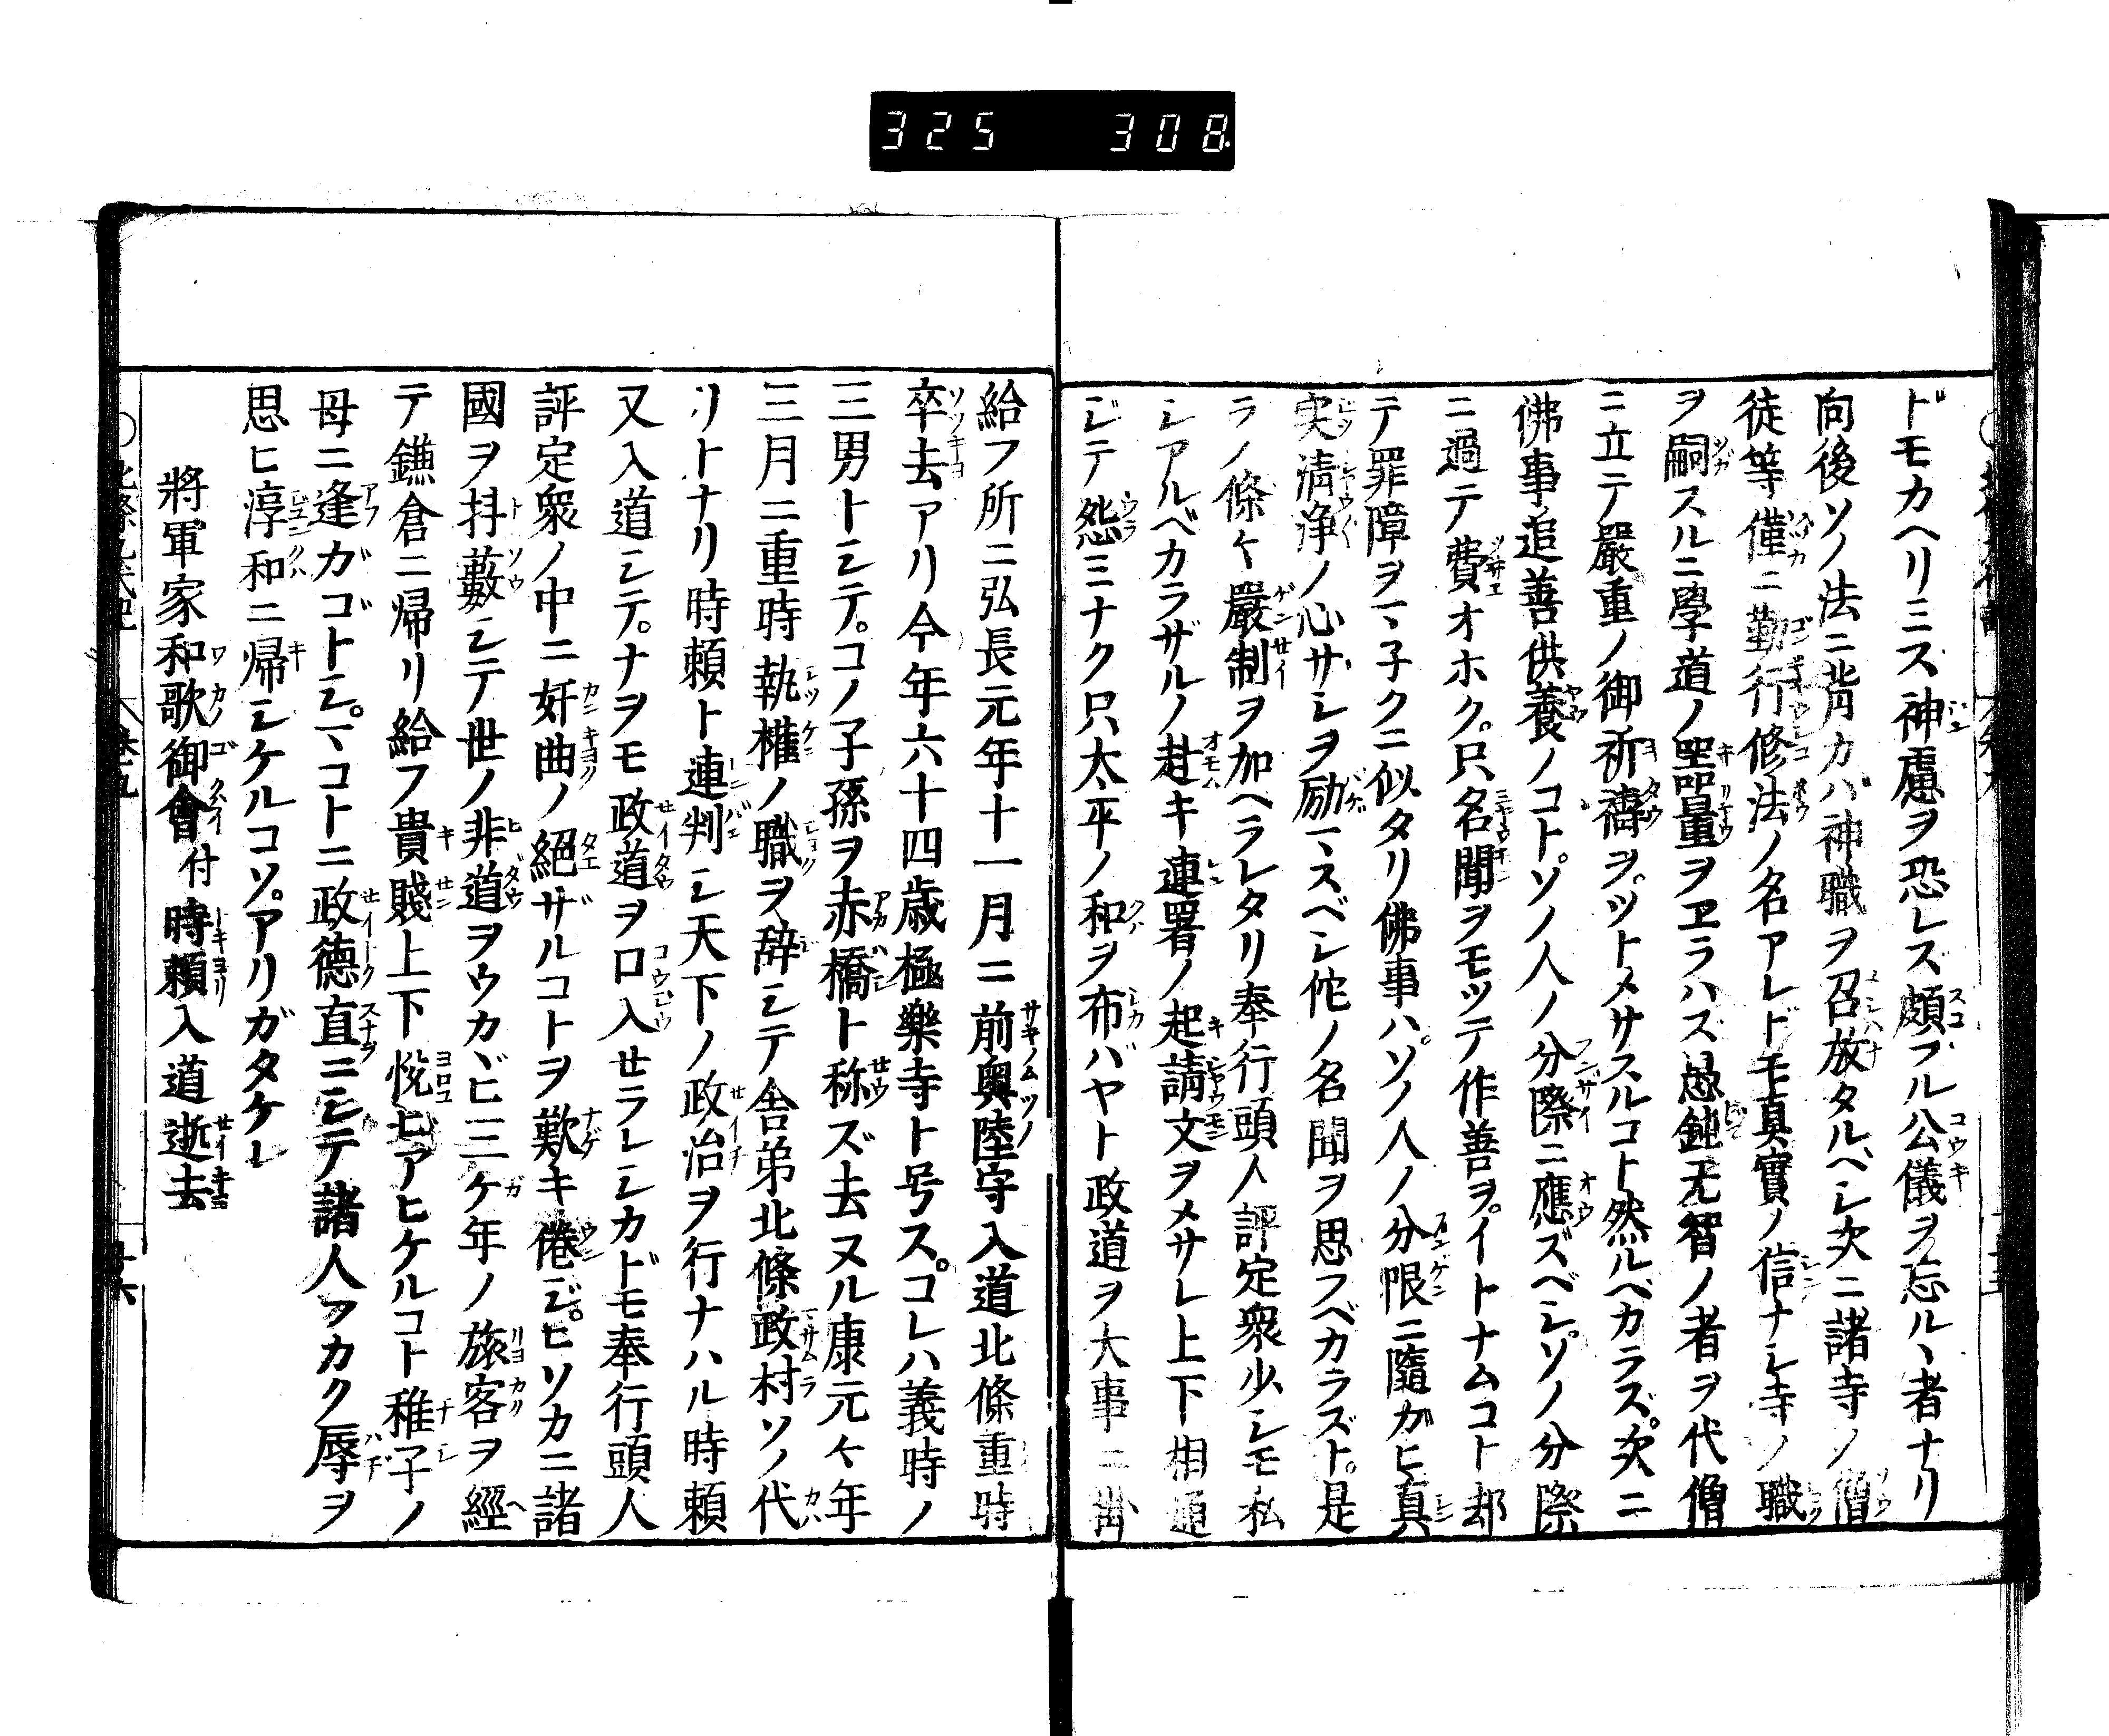 325 308
ドモカヘリミス神慮ヲ恐レズ頗フル公儀ヲ忘ルヽ者ナリ
向後ソノ法ニ背カバ神職ヲ召放タルベシ次ニ諸寺ノ僧
徒等僅ニ勤行修法ノ名アレドモ真實ノ信ナシ寺ノ職
ヲ嗣スルニ學道ノ噐量ヲヱラハズ愚鈍无智ノ者ヲ代僧
ニ立テ嚴重ノ御祈禱ヲツトメサスルコト然ルベカラズ。次ニ
佛事追善供養ノコト。ソノ人ノ分際ニ應ズベシ。ソノ分際
ニ過テ費オホク。只名聞ヲモツテ作善ヲ。イトナムコト却
テ罪障ヲマ子クニ似タリ佛事ハ。ソノ人ノ分限ニ隨ガヒ真
実清浄ノ心サシヲ励マスベシ佗ノ名聞ヲ思フベカラズト。是
ラノ條々嚴制ヲ加ヘラレタリ奉行頭人評定衆少シモ私
シアルベカラザルノ趣キ連署ノ起請文ヲメサレ上下相通
ジテ怨ミナク只太平ノ和ヲ布バヤト政道ヲ大事ニ掛
給フ所ニ弘長元年十一月ニ前奥陸守入道北條重時
卒去アリ今年六十四歳極樂寺ト号ス。コレハ義時ノ
三男トシテ。コノ子孫ヲ赤橋ト称ズ去ヌル康元々年
三月ニ重時執權ノ職ヲ辞シテ舎弟北條政村ソノ代
リトナリ時頼ト連判シ天下ノ政治ヲ行ナハル時頼
又入道シテ。ナヲモ政道ヲ口入セラレシカドモ奉行頭人
評定衆ノ中ニ奸曲ノ絕ザルコトヲ歎キ倦ジ。ヒソカニ諸
國ヲ抖藪シテ世ノ非道ヲウカヾヒ三ケ年ノ旅客ヲ經
テ鎌倉ニ帰リ給フ貴賤上下悅ビアヒケルコト稚子ノ
母ニ逢ガゴトシ。マコトニ政德直ニシテ諸人フカク辱ヲ
思ヒ淳和ニ帰シケルコソ。アリガタケレ
將軍家和歌御會付時頼入道逝去